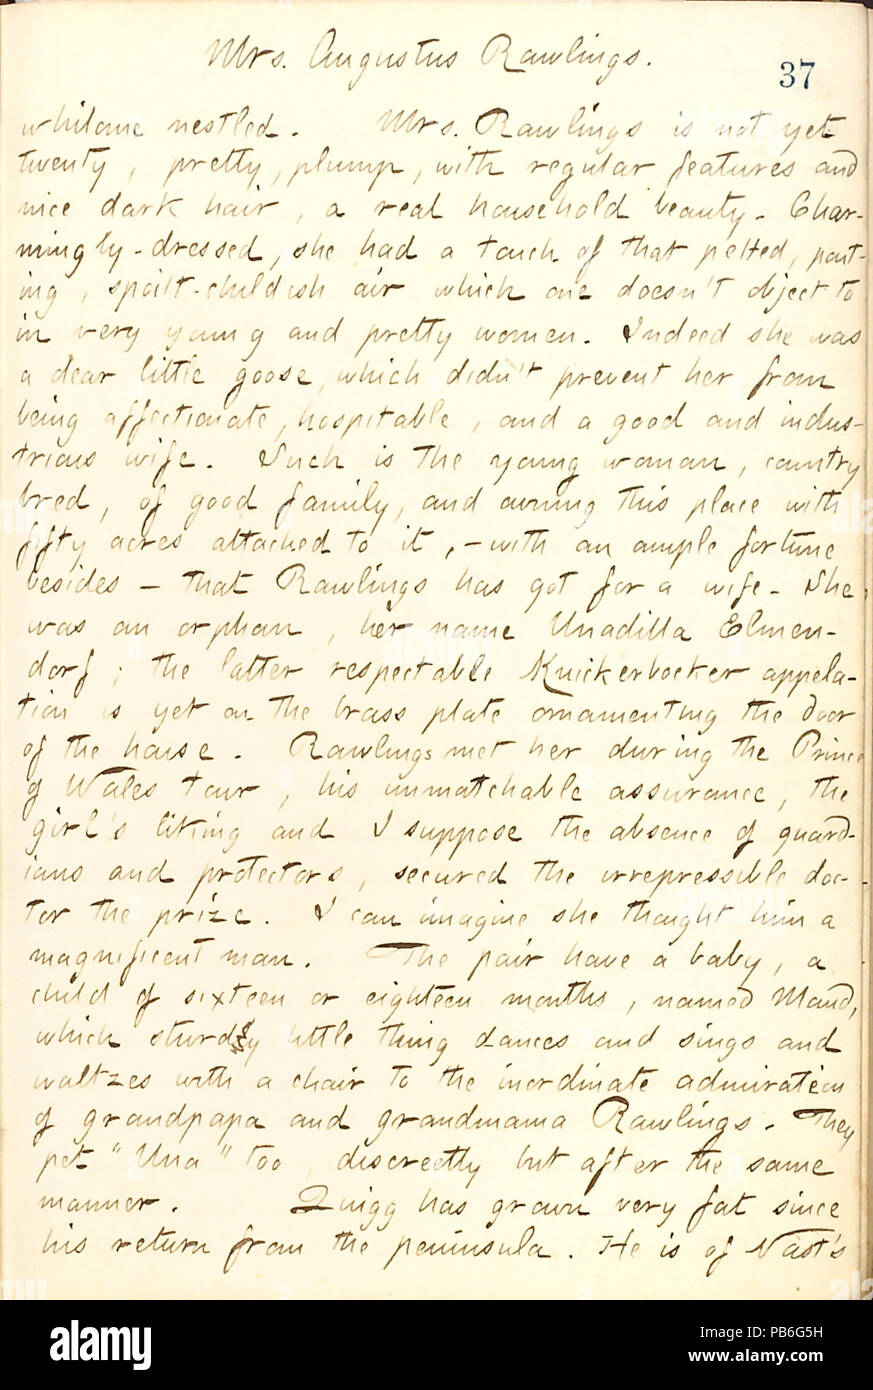 Mrs. Augustus Rawlings.
37
whilome nestled. Mrs. Rawlings is not yet
twenty, pretty, plump, with regular features and
nice dark hair, a real household beauty. Char-
mingly-dressed, she had a touch of that petted, pout-
ing, spoilt-childish air which one doesn't object to
in very young and pretty women. Indeed she was
a dear little goose, which didn't prevent her from
being affectionate, hospitable, and a good and indus-
trious wife. Such is the young woman, country
bred, of good family, and owning this place with
fifty acres attached to it, - with an ample fortune
besides - that Rawlings has got for a wife. She
was an orphan, her name Unadilla Elmen-
dorf; the latter respectable Knickerbocker appela-
tion is yet on the brass plate ornamenting the door
of the house. Rawlings met her during the Prince
of Wales tour, his unmatchable assurance, the
girl's liking and I suppose the absence of guard-
ians and protectors, secured the irrepressible doc-
tor the prize. I can imagine she thought him a
magnificent man. The pair have a baby, a
child of sixteen or eighteen months, named Maud,
which sturdy little thing dances and sings and
waltzes with a chair to the inordinate admiration
of grandpapa and grandmama Rawlings. They
pet "Una" too, discreetly but after the same
manner. Quigg has grown very fat since
his return from the peninsula. He is of Nast's
alamy
Image ID: PB6G5H
www.alamy.com